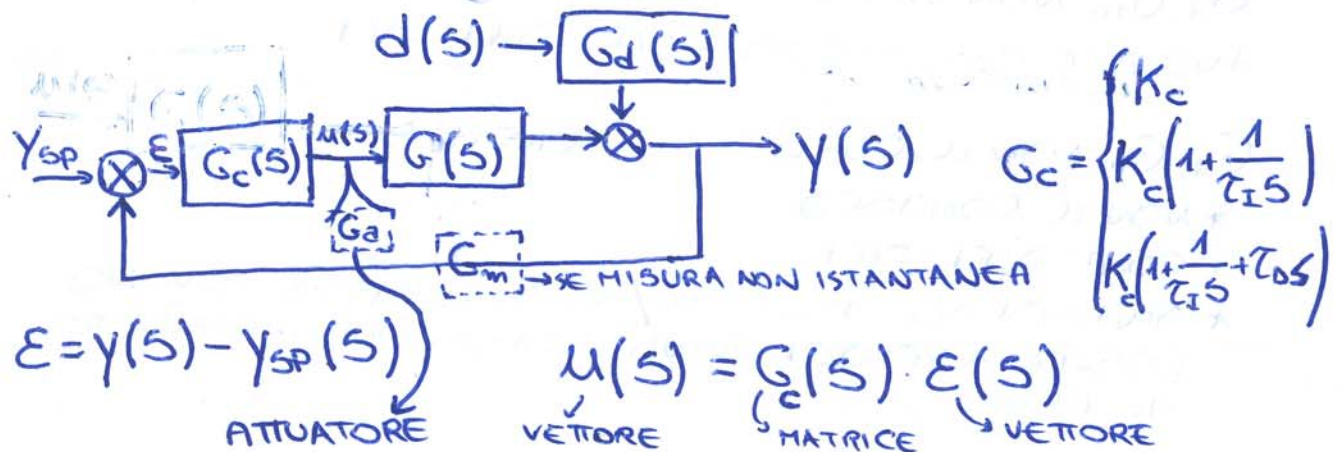 d(s) → Gd(s)
Ysp ε Gc(s) u(s) G(s) y(s)
Ga
Gm → SE MISURA NON ISTANTANEA
Gc = { Kc
Kc(1+1/(τI s))
Kc(1+1/(τI s)+τD s)
ε = y(s) - ysp(s)
u(s) = Gc(s) · ε(s)
ATTUATORE VETTORE MATRICE VETTORE